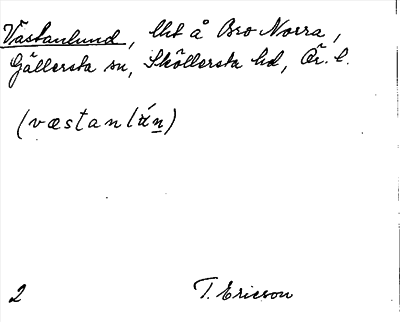 Västanlund, lht å Bro Norra,
Gällersta sn, Sköllersta hd, Ör. l.
(væstanlún)
2 T. Ericson